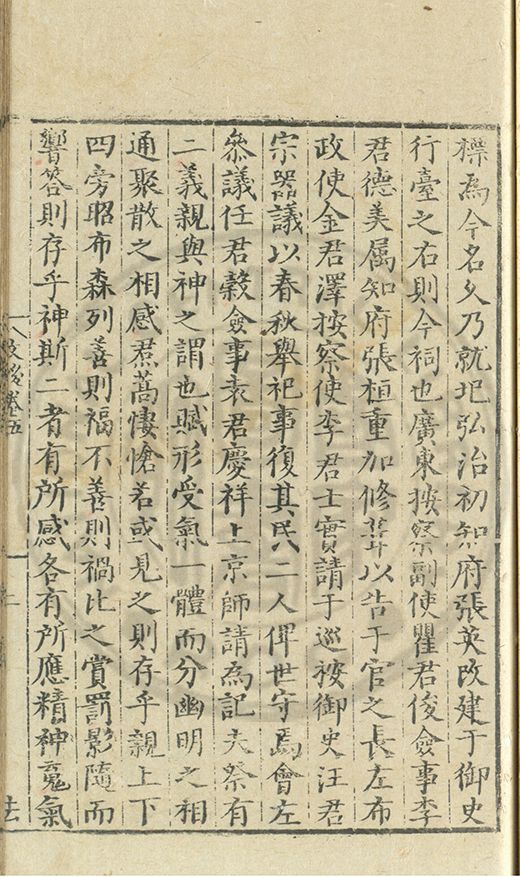 標爲今名久乃就圯弘治初知府張英改建于御史
行臺之右則今祠也廣東按察副使瞿君俊僉事李
君德美属知府張桓重加修葺以告于官之長左布
政使金君澤按察使李君士實請于巡按御史汪君
宗器議以春秋舉祀事復其民二人俾世守焉會左
叅議任君榖僉事袁君慶祥上京師請為記夫祭有
二義親與神之謂也賦形受氣一體而分幽明之相
通聚散之相感焄蒿悽愴若或見之則存乎親上下
四旁昭布森列善則福不善則禍比之賞罰影隨而
響答則存乎神斯二者有所感各有所應精神䰟氣
卷五